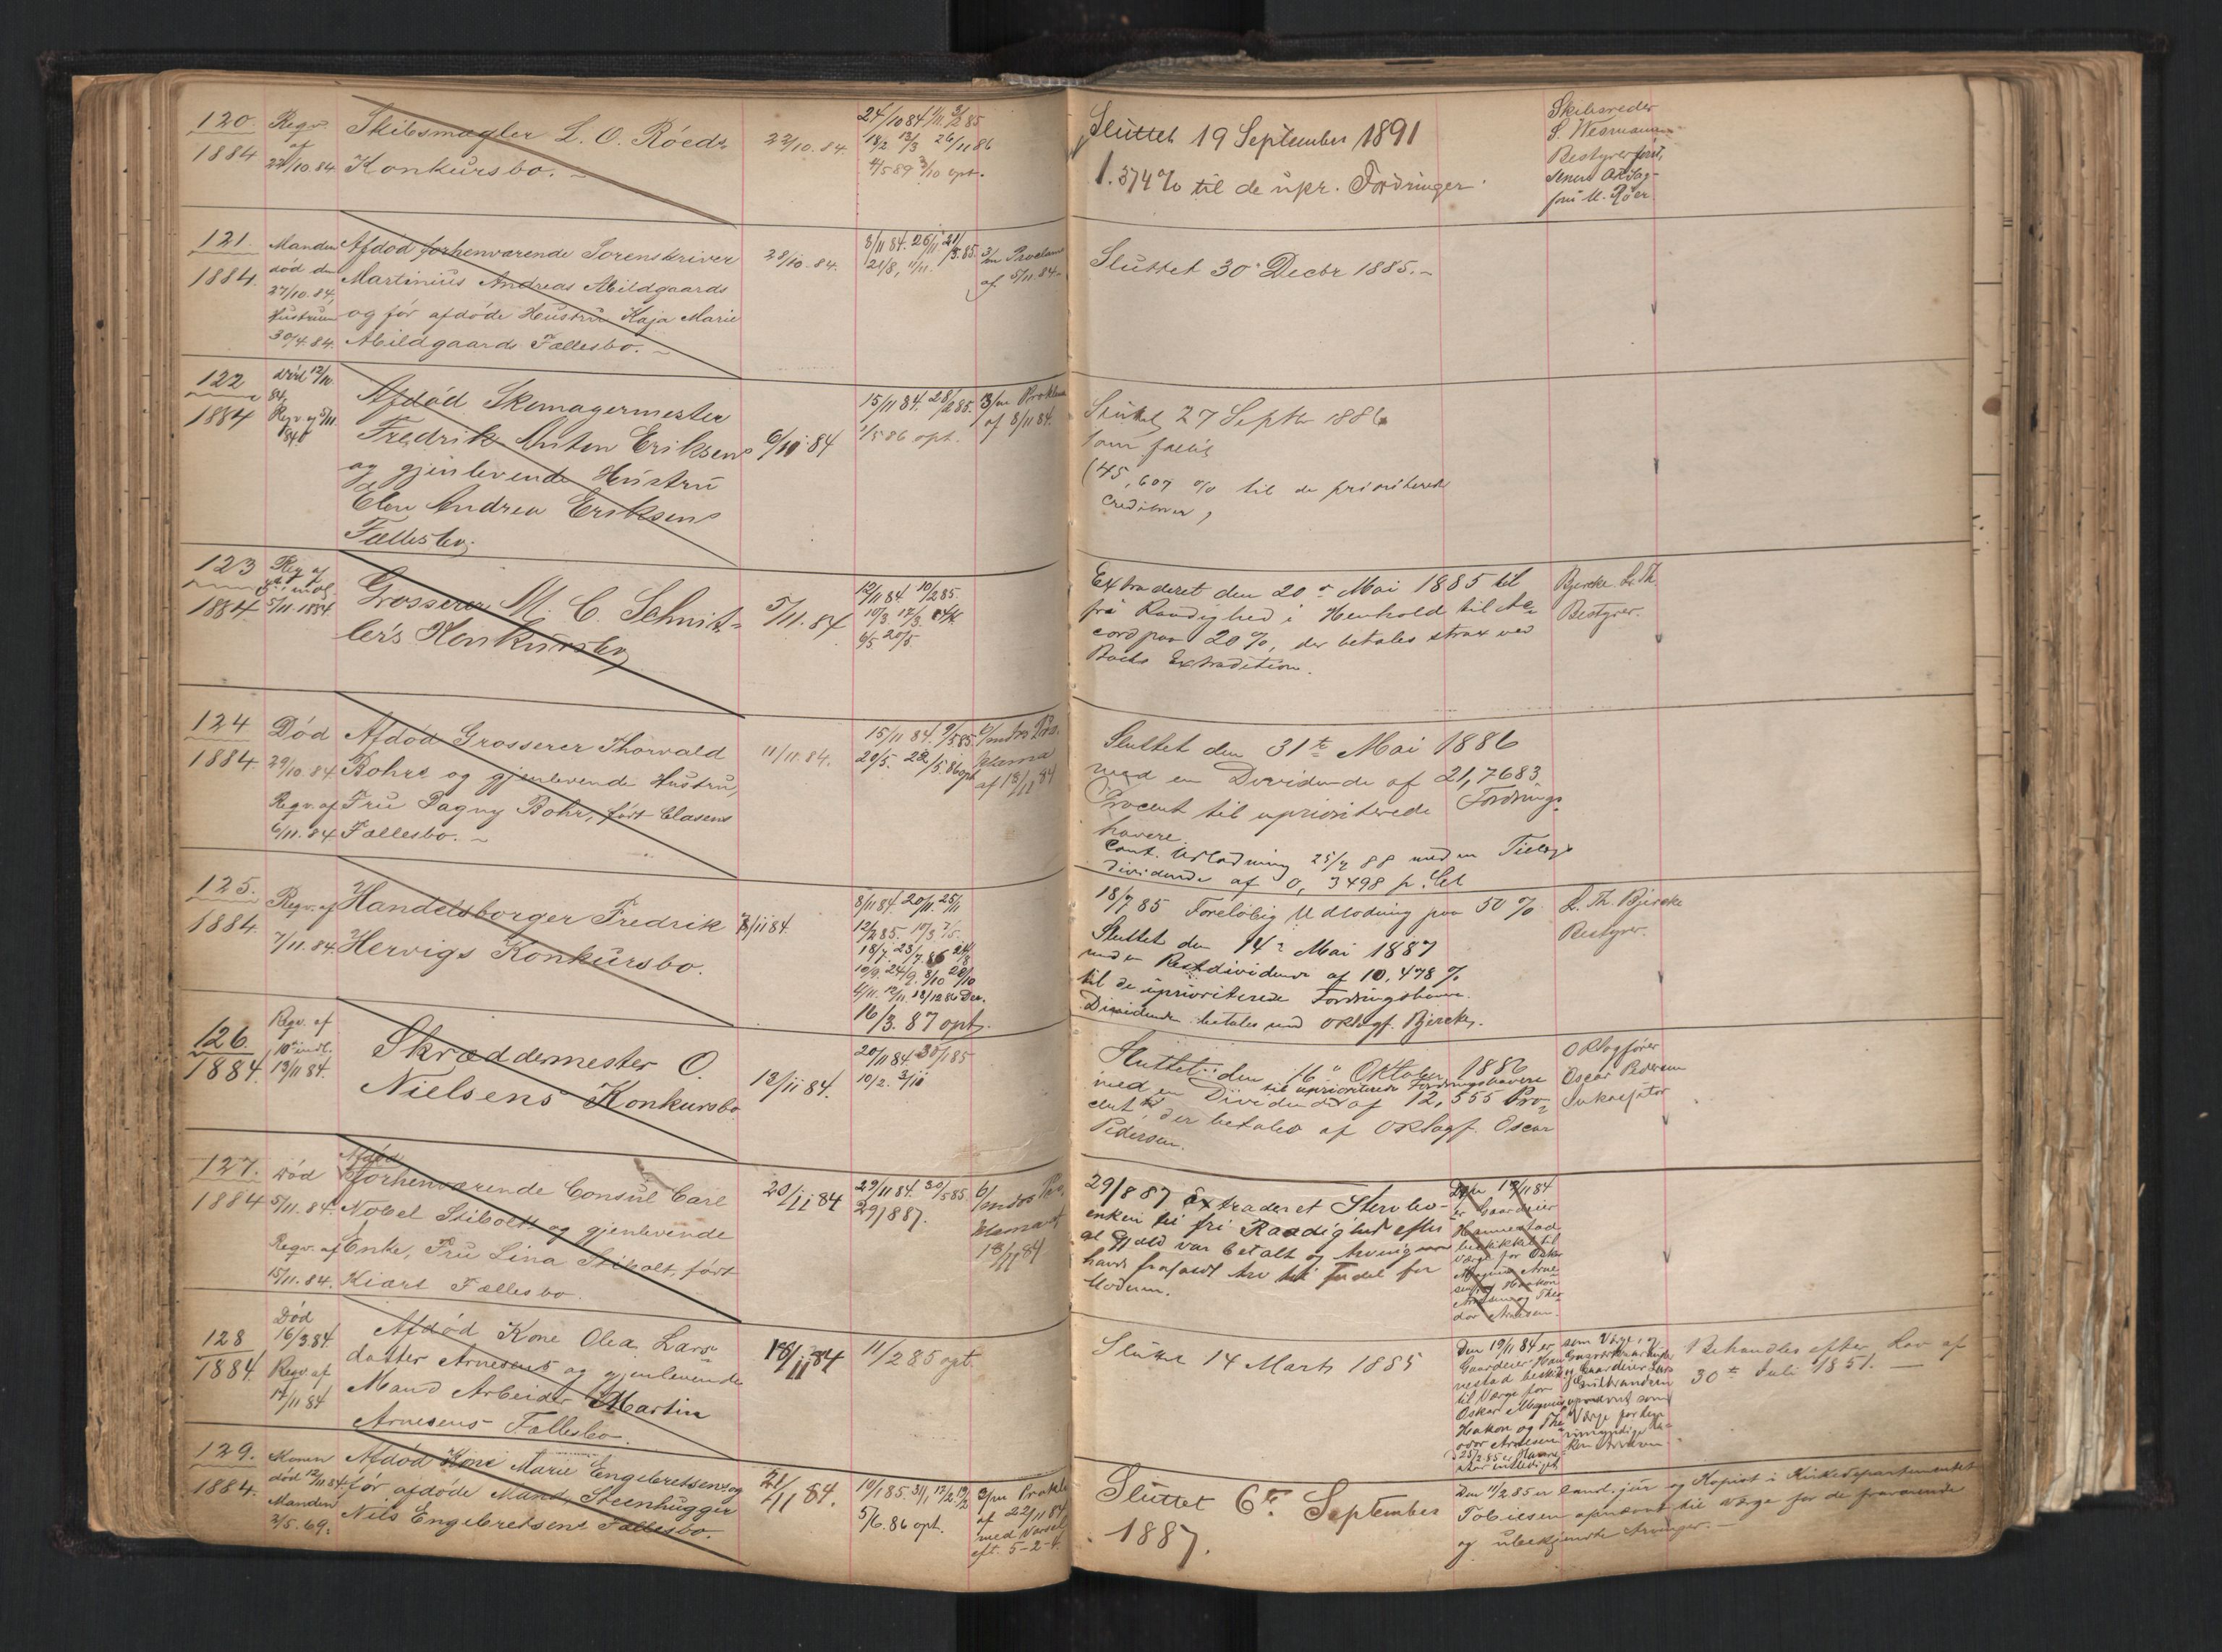 120.
1884
Reqv.
af
22/10.84
Skibsmægler L. O. Röeds
Konkursbo.
22/10.84.
24/10 84
18/2 13/3 26/11 86
4/5 89 3/10 opt.
Sluttet 19 September 1891
1.374% til de upr. Fordringer.
Skibsreder
S. Wesmann
Bestyrer först,
senere ORSag-
121.
1884.
Manden
död den
27/10.84,
Hustruen
30/4.84.
Afdöd forhenværende Sorenskriver
Martinius Andreas Abildgaards
og för afdöde Hustru Kaja Marie
Abildgaards Fællesbo.
28/10.84.
8/11 84. 26/11 21/3.85.
21/8, 11/11.
3/m Proclama
af 5/11 84
Sluttet 30 Decbr 1885.
122
1884
död 12/10
84,
Reqv. af 5/11
84
Afdöd Skomagermester
Fredrik Anton Eriksens
og gjenlevende Hustru
Elen Andrea Eriksens
Fællesbo,
6/11.84
15/11 84. 28/2 85.
1/5 86 opt.
3/m Proklama
af 8/11 84.
Sluttet 27 Septbr 1886
som fallit
(45,607 % til de prioriterede
Creditorer)
123
1884.
Reqv. af
5/11 1884.
Grosserer M. C. Schnit-
ler's Konkursbo,
5/11.84
12/11 84 10/2 85.
10/3. 17/3.
6/5 20/5.
Extraderet den 20 Mai 1885 til
fri Raadighed i Henhold til Ac-
cord paa 20%, der betales strax ved
Boets Extradition.
Bjercke L. Th.
Bestyrer.
124
1884.
Död
29/10.84
Reqv. af
6/11.84
Afdöd Grosserer Thorvald
Bohrs og gjenlevende Hustru,
Fru Dagny Bohr, født Clasens
Fællesbo.
11/11.84.
15/11 84. 9/5 85.
20/5. 22/5.86 opt
6/mdrs Pro-
klama
af 18/11 84
Sluttet den 31te Mai 1886
med en Dividende af 21,7683
Procent til uprioriterede Fordrings-
havere
Cont. Udlodning 25/7 88 med en Tillægs
dividende af 0,3498 p. Ct
125.
1884.
Reqv. af
7/11.84.
Handelsborger Fredrik
Hervigs Konkursbo.
8/11 84.
8/11 84. 20/11. 25/11
12/2 85. 10/3 7/5.
10/9. 24/9. 8/10 20/10
16/3. 87 opt.
18/7 85 Foreløbig Udlodning paa 50 %
Sluttet den 14 Mai 1887
med en Restdividende af 10,478 %
til de uprioriterede Fordringshavere.
Dividenden betales ved ORSagf. Bjercke.
L. Th. Bjercke
Bestyrer.
126.
1884.
Reqv. af
10de indl.
13/11 84.
Skræddermester O.
Nielsens Konkursbo
13/11 84.
20/11 84 30/1 85
10/2. 3/10
Sluttet den 16 Oktober 1886
til uprioriterede Fordringshavere
med en Dividende af 12,555 Pro-
cent, der betales af ORSagf. Oscar
Pedersen.
ORSagfører
Oscar Pedersen
Inkassator
127.
1884
död
5/11.84.
Reqv. af
15/11.84.
Afdöd
Forhenværende Consul Carl
Nobel Stibolts og gjenlevende
Enke, Fru Lina Stibolt, født
Kiærs Fællesbo.
20/11 84
29/11 84. 30/5 85.
29/8 87.
6/mdrs Pro-
klama af
18/11 84
29/8 87 Extraderet Stervbo-
enken til fri Raadighed efter
at Gjæld var betalt og Arving
havde frafaldt Arv til Fordel for
Moderen.
er Gaardeier
Hannestad
beskikket til
Værge for Oskar
Magnus Arne-
sen, og Haakon
Arnesen og Theo-
dor Arnesen.
128
1884.
Död
16/3.84
Reqv. af
17/11 84
Afdöd Kone Olea Lars-
datter Arnesens og gjenlevende
Mand Arbeider Martin
Arnesens Fællesbo.
18/11 84
11/2 85 opt.
Sluttet 14 Marts 1885
Den 19/11 84 er
Gaardeier Han-
nestad beskikket
til Værge for
Oskar Magnus
Hakon og The-
odor Arnesen
Behandles efter Lov af
30te Juli 1851.
129.
1884.
Konen
död 12/11 84
Manden
3/5.69.
Afdöd Kone Marie Engebretsens og
för afdöde Mand, Steenhugger
Nils Engebretsens Fællesbo.
21/11 84.
10/1 85. 31/1 12/2 19/2
5/6.86 opt.
3/m Prokla
af 22/11 84
med Varsel
eft. 5-2-4.
Sluttet 6te September
1887.
Den 11/2 85 er cand. jur. og Kopist i Kirkedepartementet
Tobiesen opnævnt til Værge for de fraværende
og ubekjendte Arvinger.